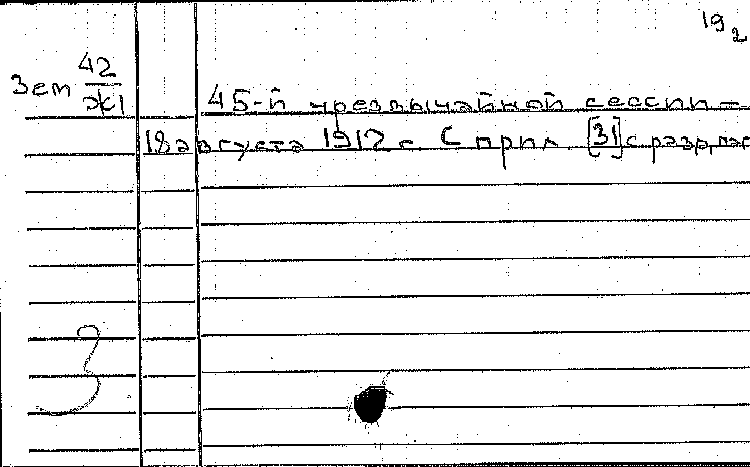 19₂
Зем 42
Ж1
45-й чрезвычайной сессии —
18 августа 1917 г. С прил. [31] с разр. паг
3